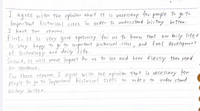 I agree with the opinion that it is necessary for people to go to
important historical sites in order to understand history better.
I have two reasons.
First, it is very good opportunity for us to know that our daily life
is very happy to go to important historical sites, and feel development
of technology and daily life.
Second, it is more important for us to see and hear directly than read
for textbook.
For these reasons, I agree with the opinion that is necessary for
people to go to important historical sites in order to understand
history better.